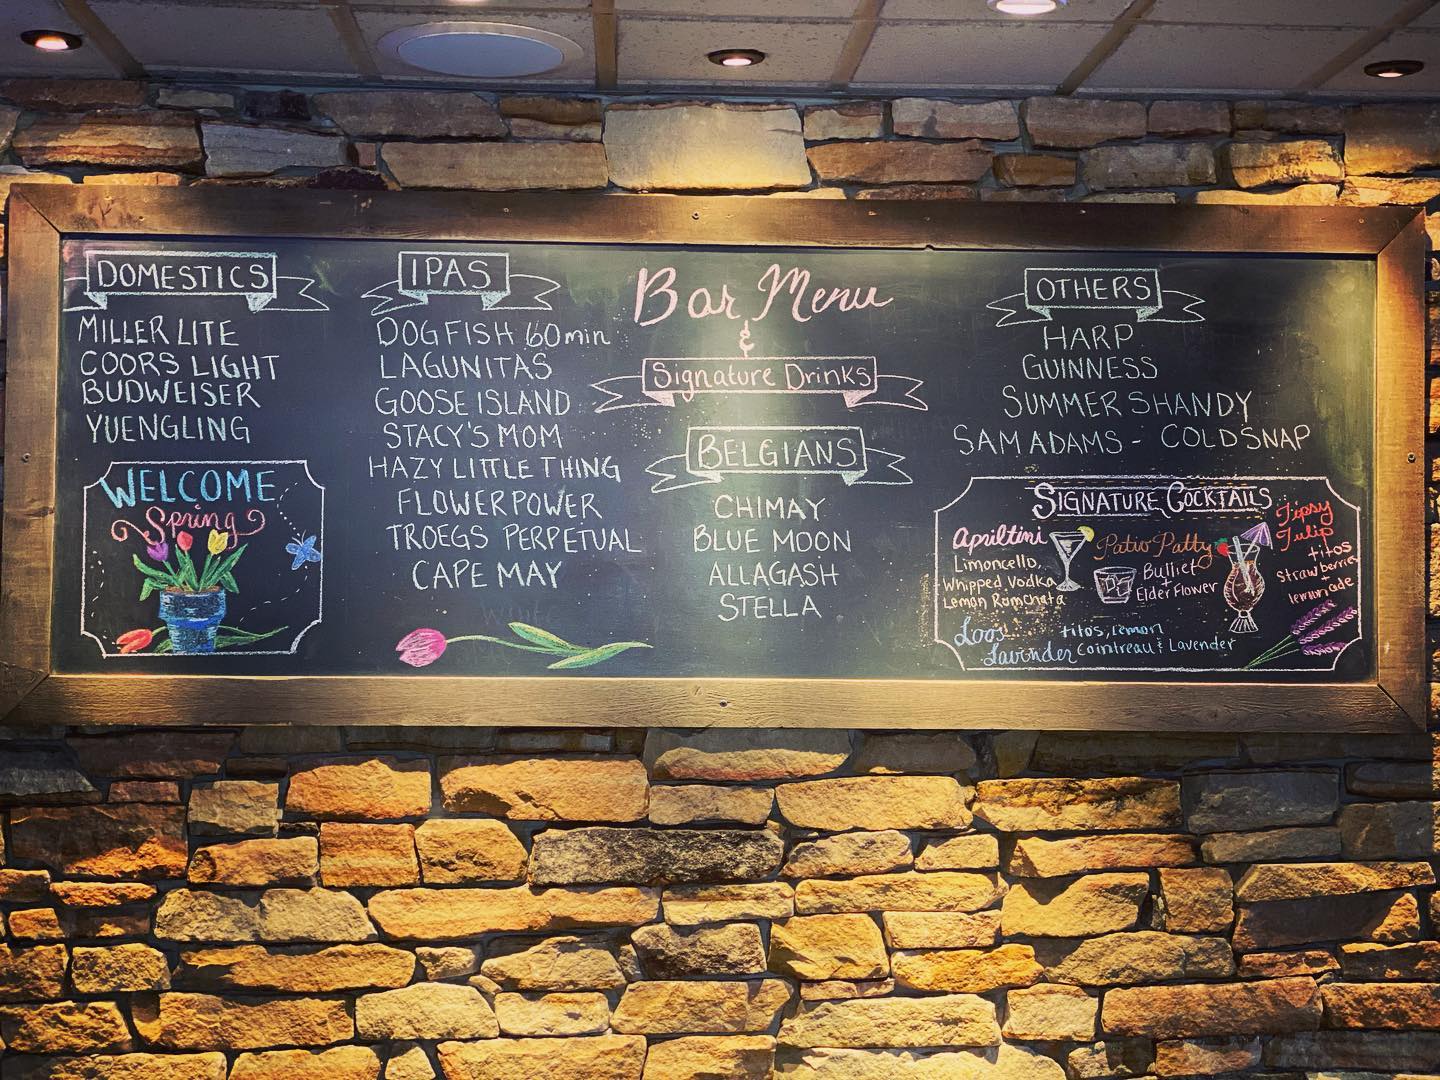 DOMESTICS
MILLER LITE
COORS LIGHT
BUDWEISER
YUENGLING
WELCOME
Spring
IPAS
DOGFISH 60min
LAGUNITAS
GOOSE ISLAND
STACY'S MOM
HAZY LITTLE THING
FLOWER POWER
TROEGS PERPETUAL
CAPE MAY
Bar Menu
&
Signature Drinks
BELGIANS
CHIMAY
BLUE MOON
ALLAGASH
STELLA
OTHERS
HARP
GUINNESS
SUMMER SHANDY
SAM ADAMS - COLD SNAP
SIGNATURE COCKTAILS
Apriltini
Limoncello,
Whipped Vodka
Lemon Rumchata
Patio Patty
Bulliet
+
Elder Flower
Tipsy
Tulip
titos
strawberries
+
lemonade
Loos
Lavender
titos, lemon
Cointreau & Lavender